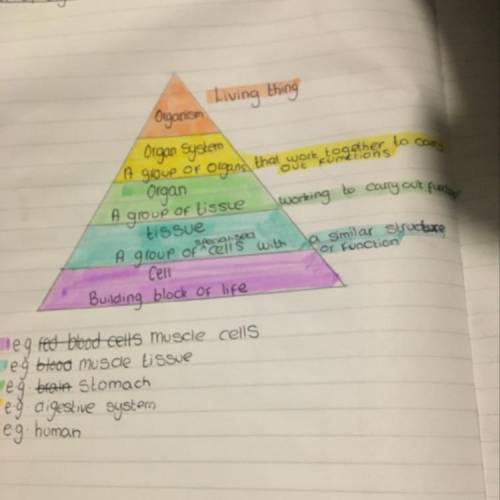 Living thing
Organism
Organ System
A group of organs that work together to carry
out functions
Organ
A group of tissue working to carry out
tissue
A group of specialised cells with a similar structure
or function
Cell
Building block of life
eg red blood cells muscle cells
eg blood muscle tissue
eg brain stomach
eg digestive system
eg human